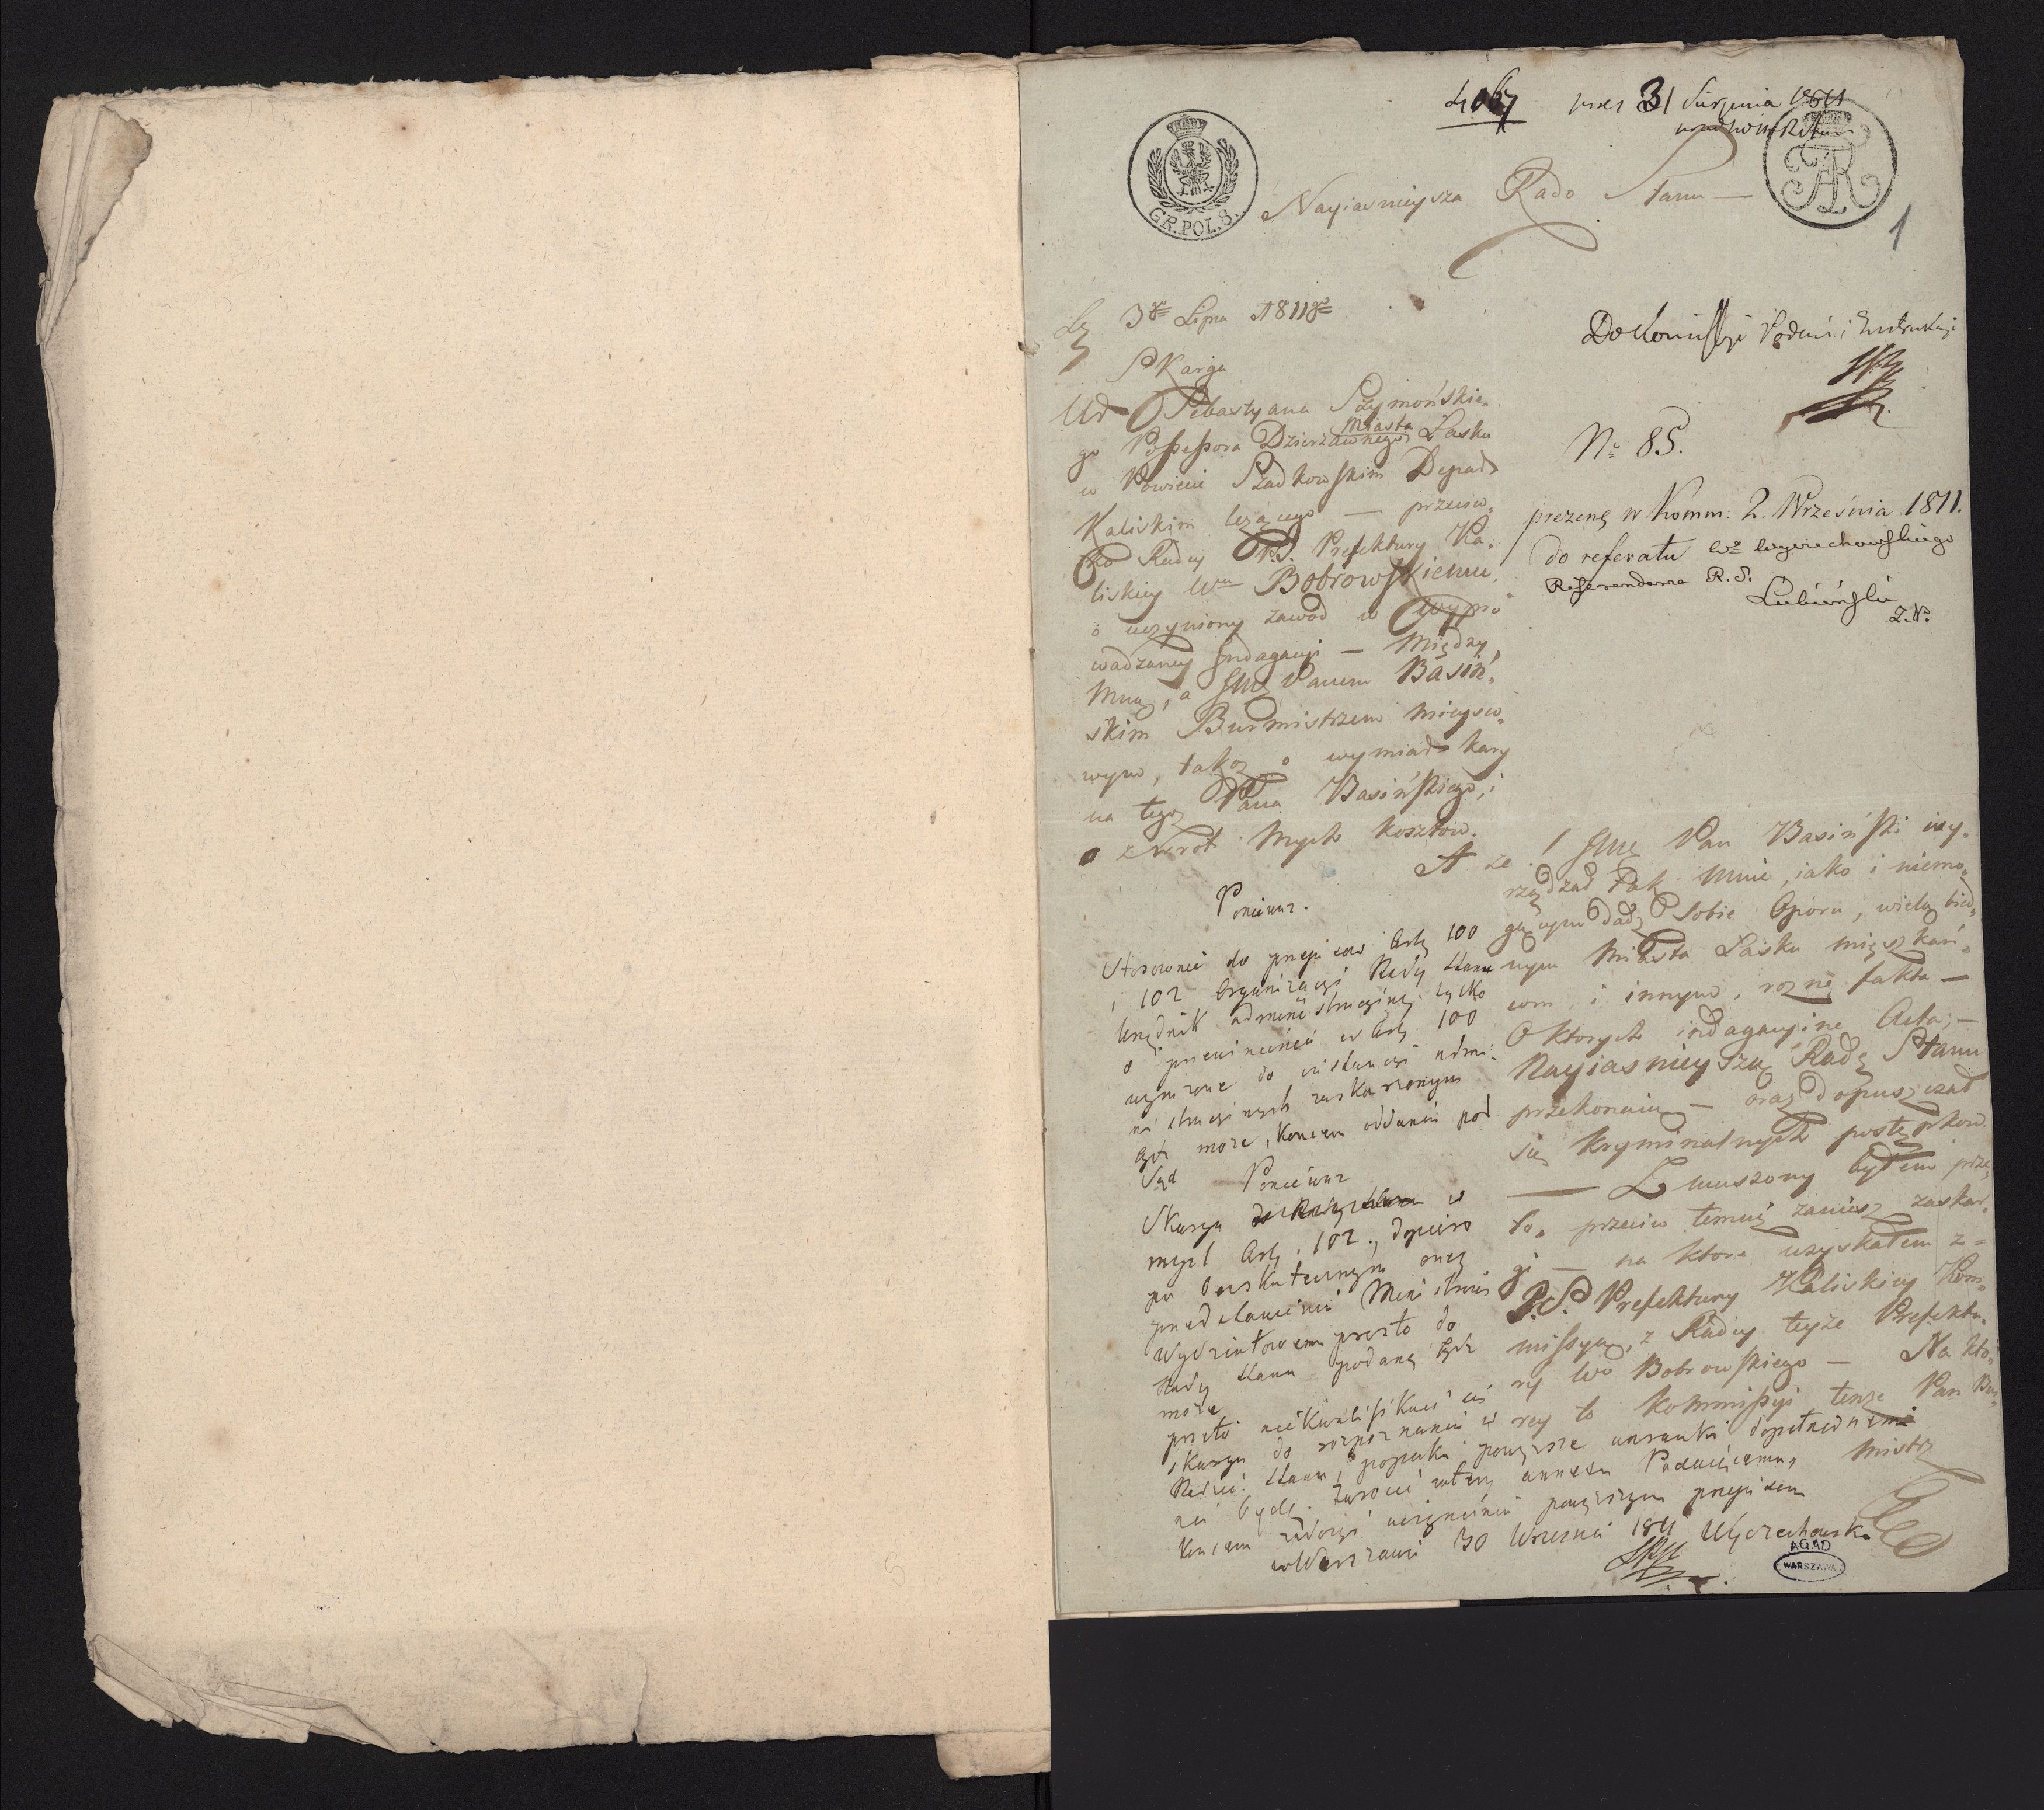 31 Sierpnia 1811
GR.POL.8.
Nayiasnieysza Rado Stanu —
1
3go Lipca 1811go
Skarga
Sebastyana Szymońskie„
go Possessora Dzierzawnego miasta Lasku
w Powiecie Szadkowskim Depart
Kaliskim lezącego — przeciw„
ko Radcy P.D. Prefektury Ka„
liskiey Wmu Bobrowskiemu,
o uczyniony zawod w wypro
wadzaney Indagacyi — Między
Mną, a Panem Basiń„
skim Burmistrzem mieysco„
wym, takoz o wymiar kary
na tegoz Pana Basińskiego, i
o zwrot mych kosztow.
Do Kommissyi Podań i Instrukcyi
No 85.
prezene w Komm: 2. Września 1811.
do referatu Wo Wyczechowskiego
Referendarza R. S.
Lubieński
A ze Pan Basiński wy„
rządzał tak mnie, iako i niemo„
gącym dać sobie Oporu, wielu bied„
nym Miasta Lasku mięszkań„
com i innym, rozne fakta —
O ktorych indagacyine Acta, —
Nayiasnieyszą Radę Stanu
przekonaią — oraz dopuszczał
się kryminalnych postępkow.
— Zmuszony byłem prze„
to, przeciw temuz zanieść zaskar„
gi — na ktore uzyskałem z=
P.S. Prefektury Kaliskiey Kom„
missyą, z Radcy teyże Prefektu„
ry Wo Bobrowskiego — Na kto„
rey to Kommissyi tenze Pan Bur„
mistrz
Poniewaz.
Stosownie do przepisow Arty 100
i 102 Organizacyi Rady Stanu
Urzędnik administracyiny tylko
o przewinienie w Arty 100
wyrazone do instancyi admi„
nistracyinych zaskarzonym
być może, koncem oddania pod
Sąd Poniewaz
Skarga w
mysl Arty. 102., dopiero
po bezskutecznym oney
przedstawieniu Ministrowi
Wydziałowemu prosto do
Rady Stanu podaną być
może
przeto niekwalifikuie się
skarga do rozpoznania w
Radzie Stanu, popoki powyzsze warunki dopełnionemi
nie będą. Zwrocić annexa Podaiącemu,
koncem uczynienia powyzszym przepisom
w Warszawie 30 Wrzesnia 1811 Wyczechowski
AGAD
WARSZAWA